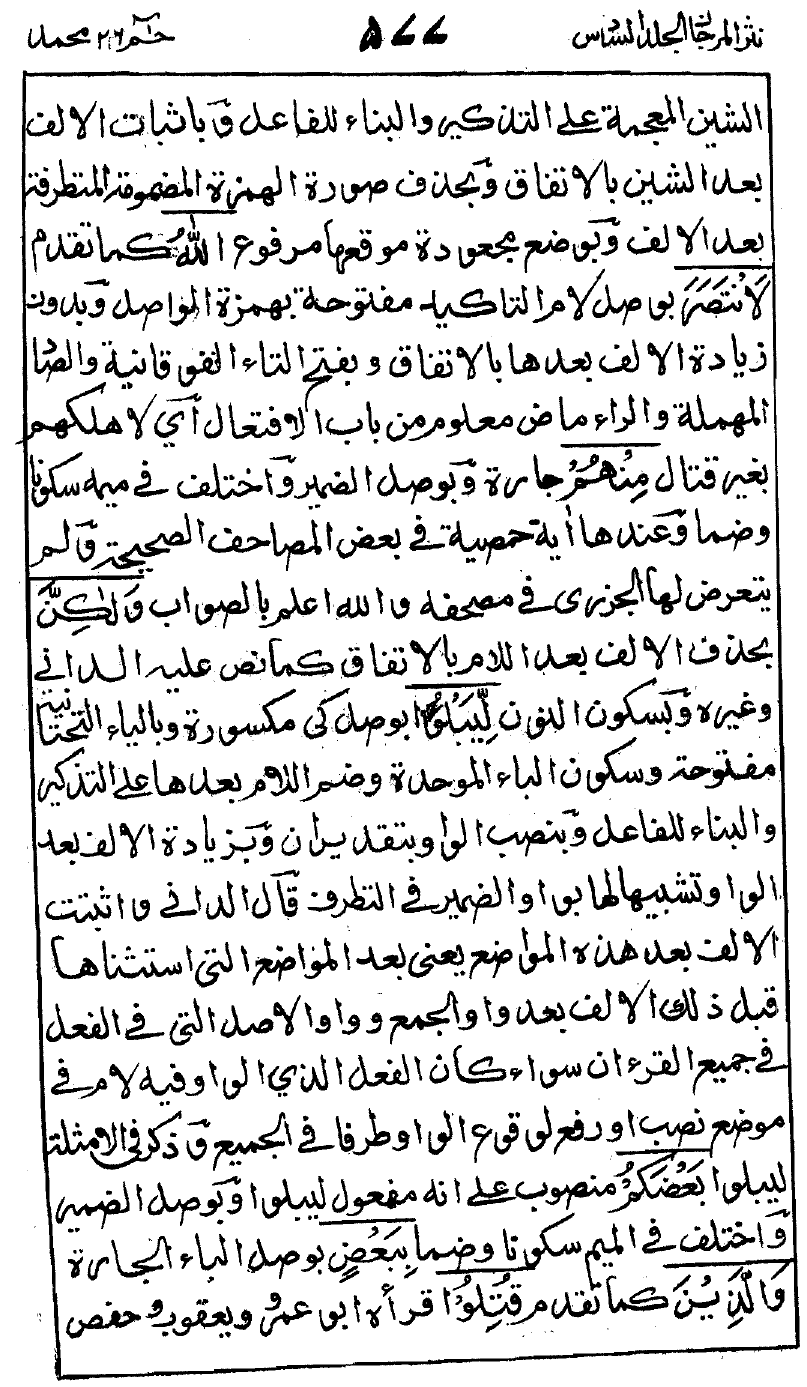 نثر المرجان المجلد السادس ۵۷۷ حٰمٓ ۲۶ محمد
الشين المعجمة على التذكير والبناء للفاعل وَباثبات الالف
بعد الشين بالاتفاق وَبحذف صورة الهمزة المضمومة المتطرفة
بعد الالف وَبوضع مجعودة موقعها مرفوع اللّٰهُ كما تقدم
لَانْتَصَرَ بوصل لام التاكيد مفتوحة بهمزة الواصل وَبدون
زيادة الالف بعدها بالاتفاق وبفتح التاء الفوقانية والصاد
المهملة والراء ماض معلوم من باب الافتعال اَي لاهلكهم
بغير قتال مِنْهُمْ جارة وَبوصل الضمير وَاختلف في ميمه سكونا
وضما وَعندها اٰية حمصية في بعض المصاحف الصحيحة وَلم
يتعرض لها الجزرى في مصحفه والله اعلم بالصواب وَلٰكِنْ
بحذف الالف بعد اللام بالاتفاق كما نص عليه الداني
وغيره وَبسكون النون لِّيَبْلُوَا بوصل كى مكسورة وبالياء التحتانية
مفتوحة وسكون الباء الموحدة وضم اللام بعدها على التذكير
والبناء للفاعل وَبنصب الواو بتقدير ان وَبزيادة الالف بعد
الواو تشبيها لها بواو الضمير في التطرف قَال الداني واثبتت
الالف بعد هذه المواضع يعنى بعد المواضع التي استثناها
قبل ذلك الالف بعد واو الجمع وواو الاصل التي في الفعل
في جميع القرءان سواء كان الفعل الذي الواو فيه لام في
موضع نصب او رفع لوقوع الواو طرفا في الجميع وَذكر في الامثلة
ليبلوا بَعْضَكُمْ منصوب على انه مفعول ليبلوا وَبوصل الضمير
وَاختلف في الميم سكونا وضما بِبَعْضٍ بوصل الباء الجارة
وَالَّذِيْنَ كما تقدم قُتِلُوْا قرأه ابو عمرو ويعقوب وحفص